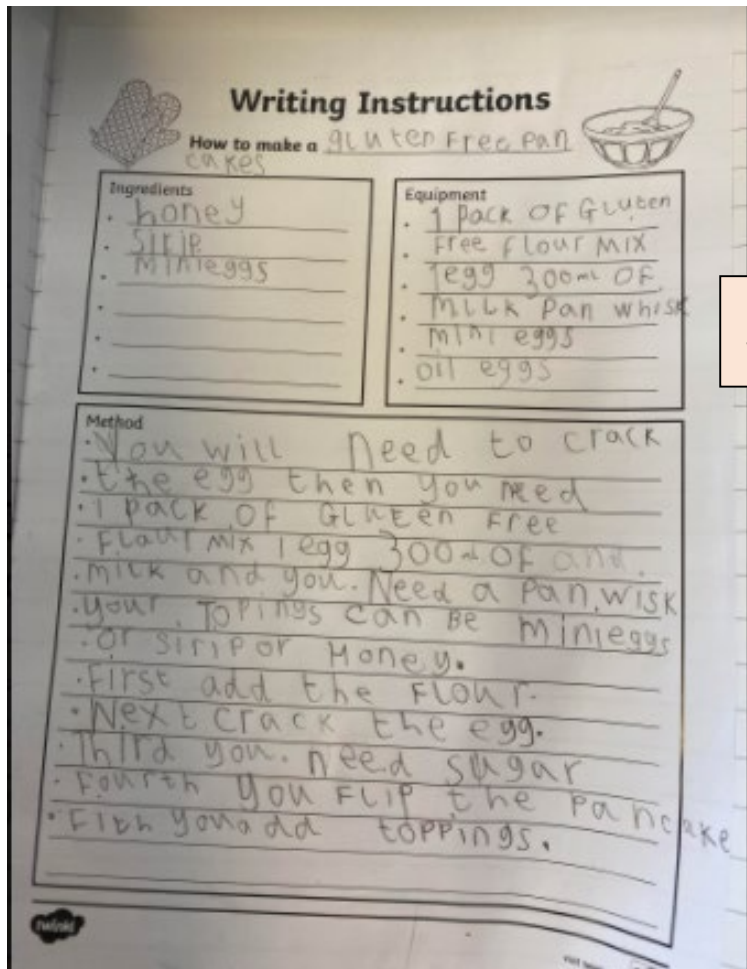 Writing Instructions
How to make a gluten Free pan
cakes
Ingredients
honey
sirip
minieggs
Equipment
1 pack OF Gluten
Free flour mix
1egg 300ml OF
milk pan whisk
mini eggs
oil eggs
Method
You will need to crack
the egg then you need
1 pack OF Gluten Free
Flour mix 1 egg 300ml OF and
milk and you. Need a pan, wisk
your Topings can Be minieggs
or sirip or Honey.
First add the Flour.
Next crack the egg.
Third you. need sugar
Fourth you FLIP the pancake
Fith you add toppings.
twinkl